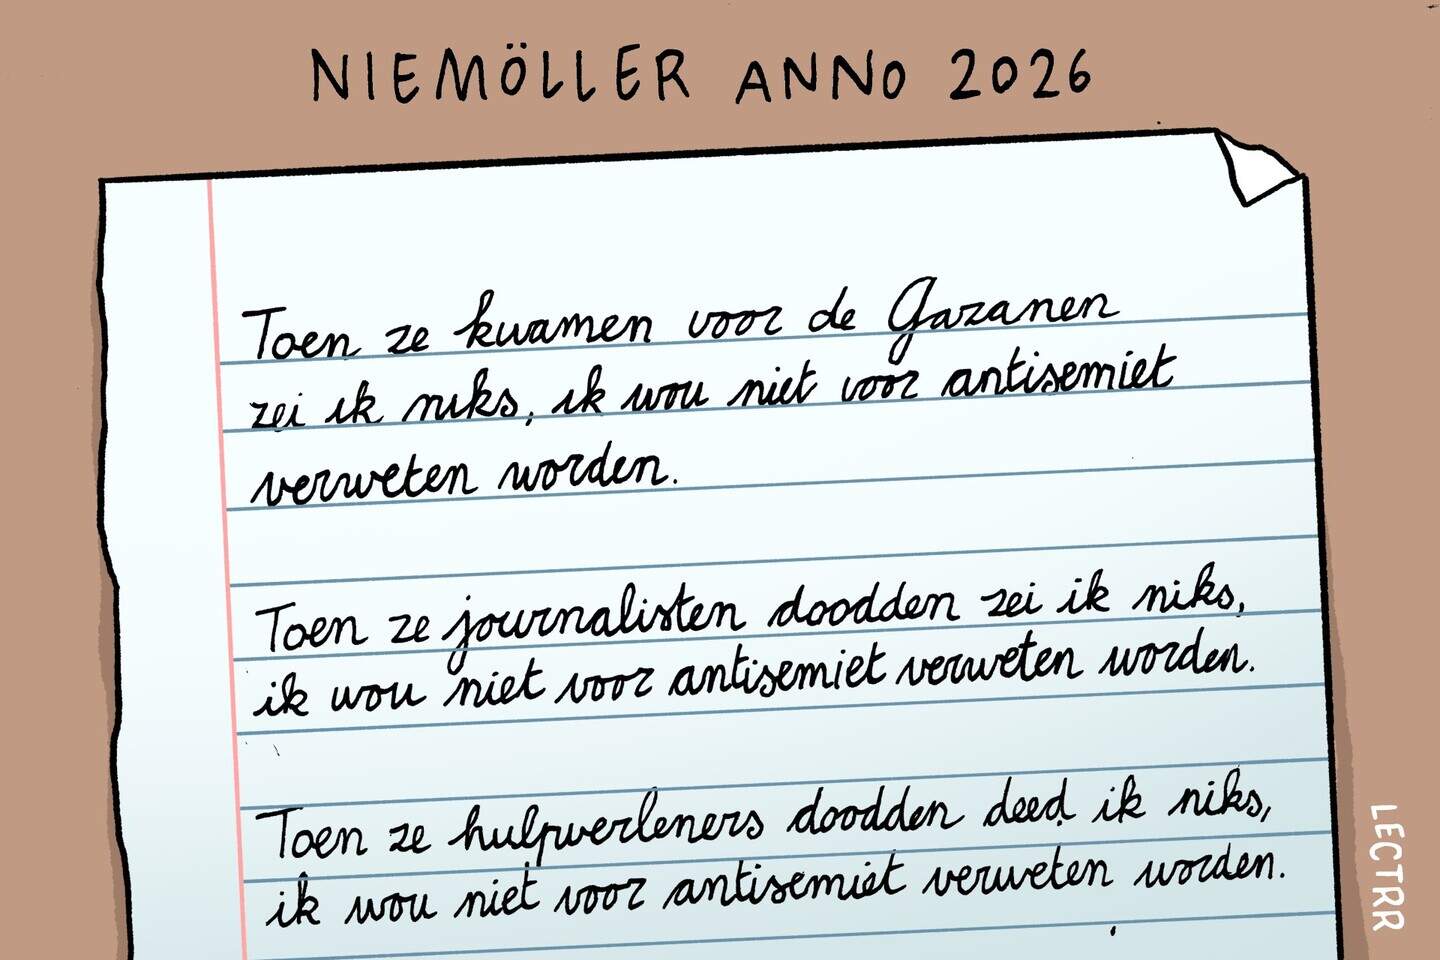 NIEMÖLLER ANNO 2026
Toen ze kwamen voor de Gazanen
zei ik niks, ik wou niet voor antisemiet
verweten worden.
Toen ze journalisten doodden zei ik niks,
ik wou niet voor antisemiet verweten worden.
Toen ze hulpverleners doodden deed ik niks,
ik wou niet voor antisemiet verweten worden.
LECTRR